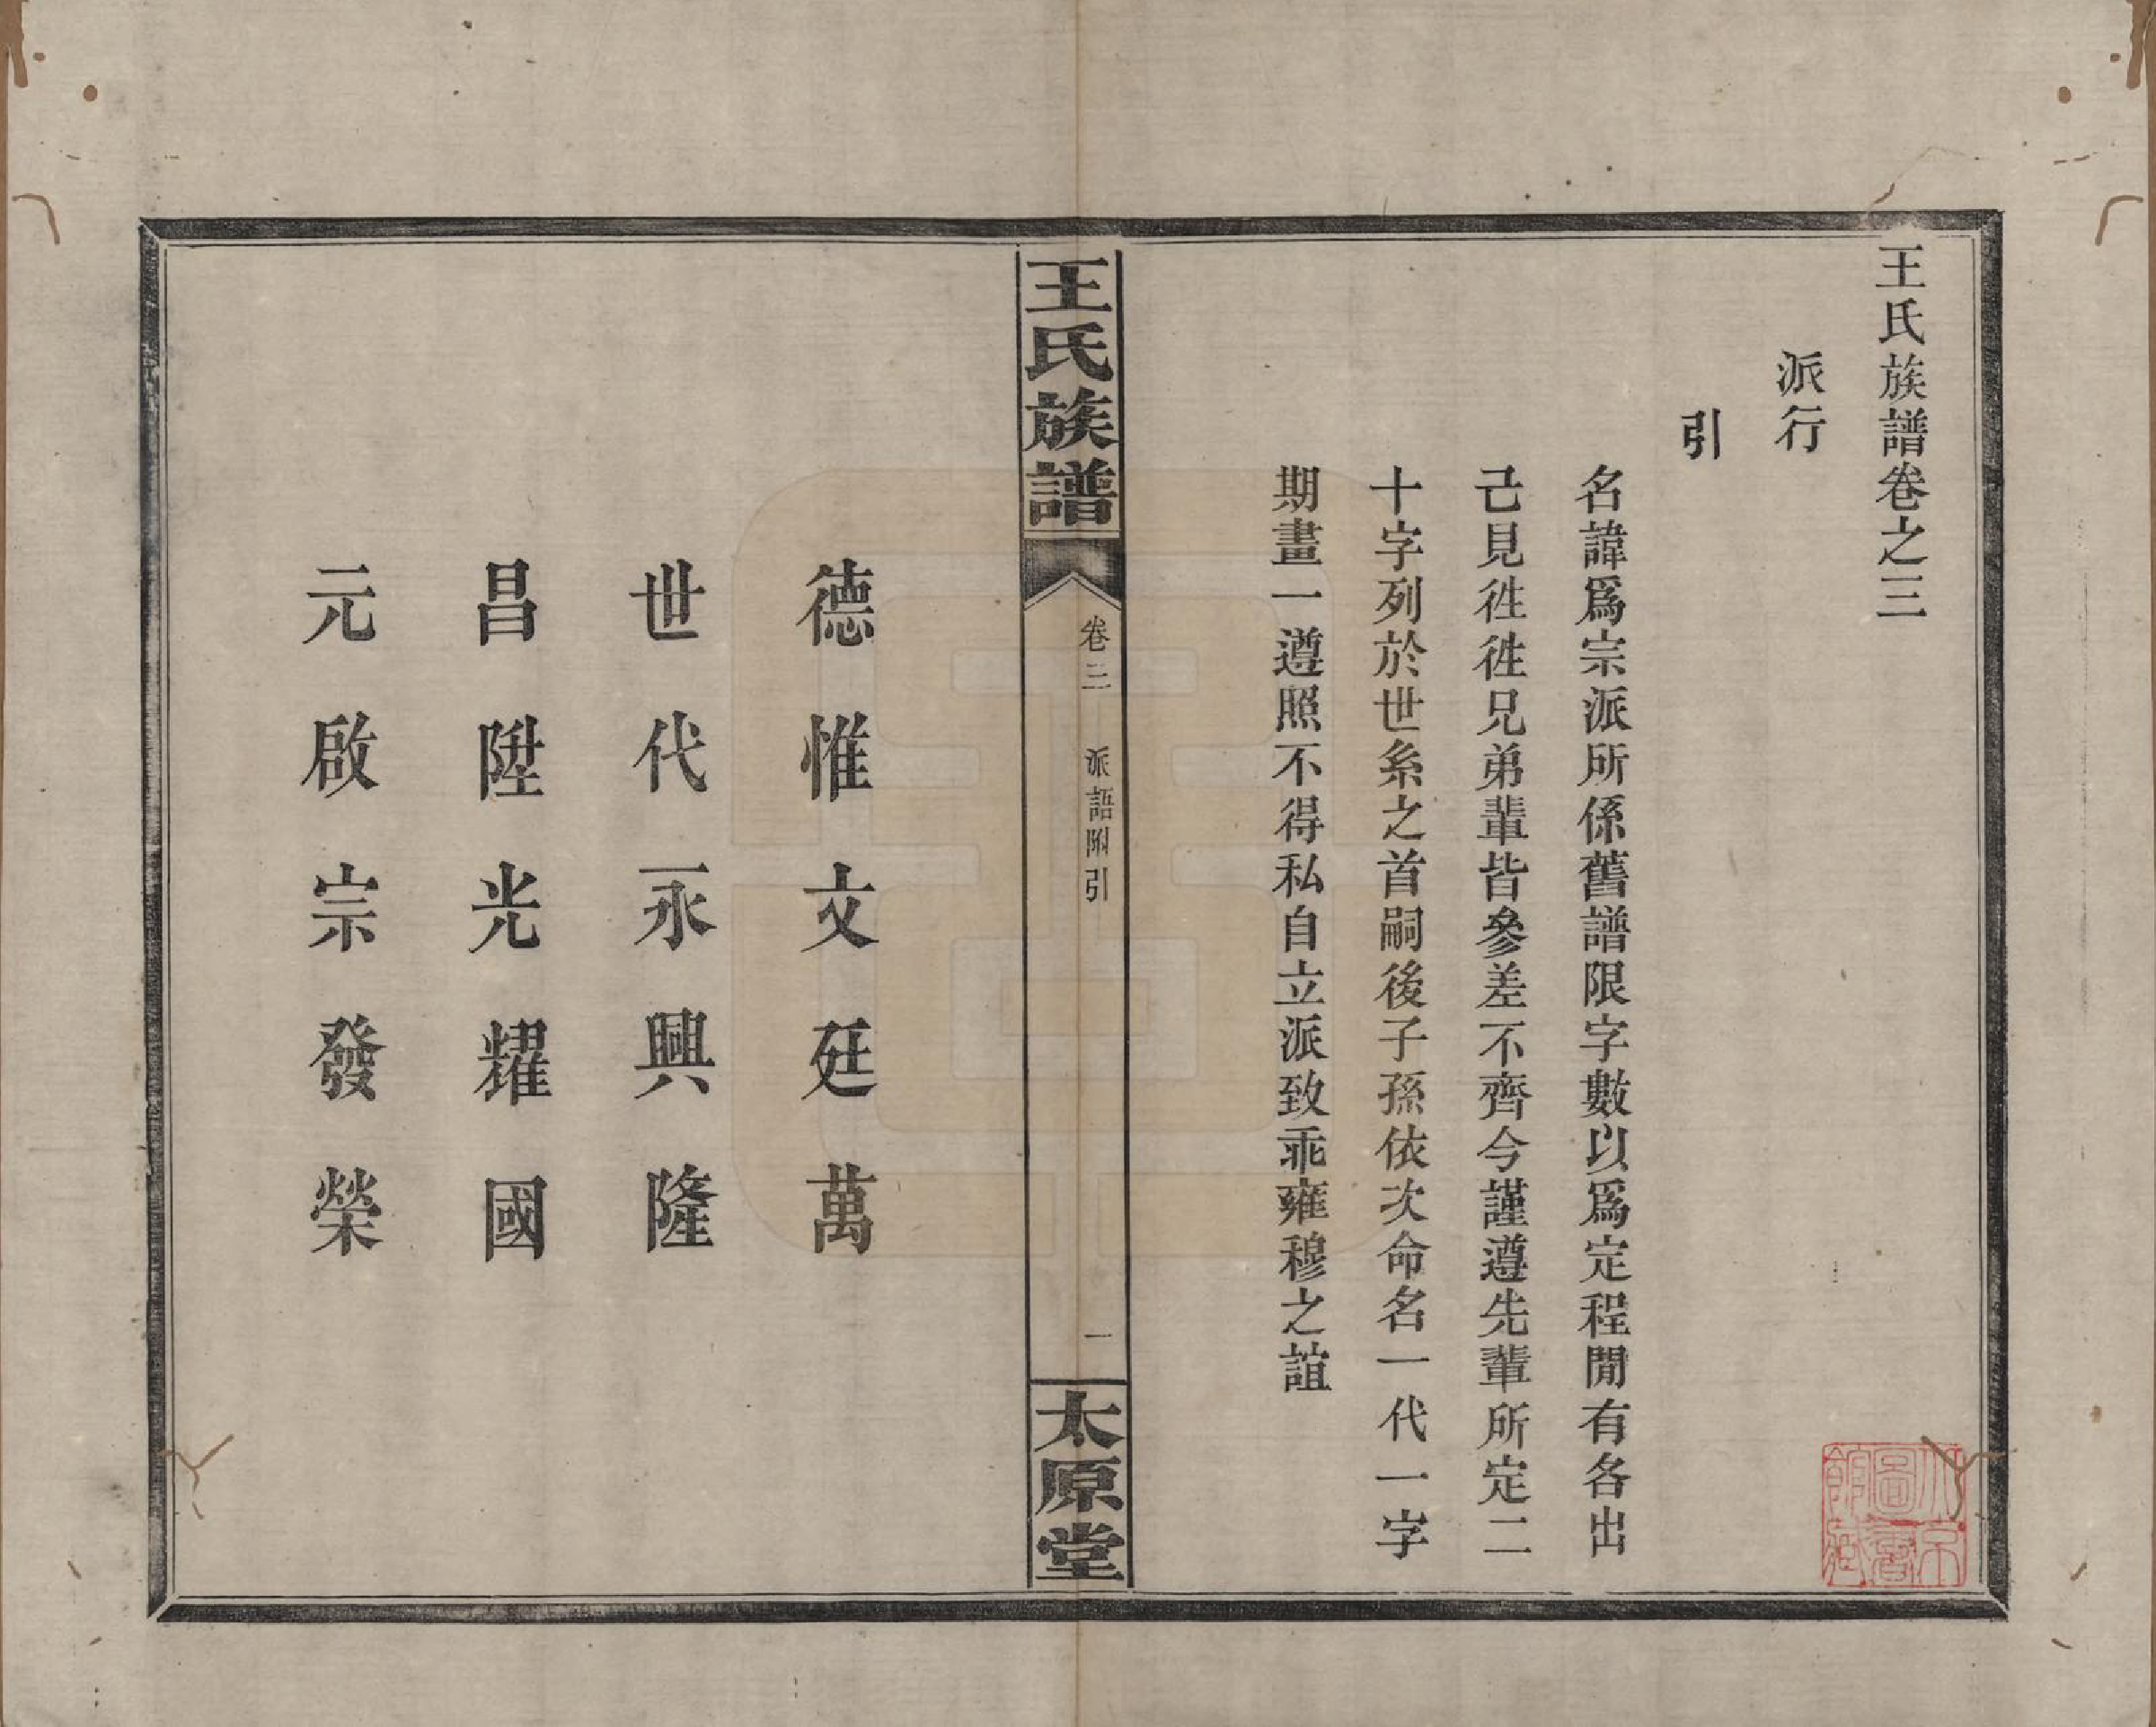 王氏族譜卷之三
派行
引
名諱爲宗派所係舊譜限字數以爲定程間有各出
己見徃徃兄弟輩皆參差不齊今謹遵先輩所定二
十字列於世系之首嗣後子孫依次命名一代一字
期畫一遵照不得私自立派致乖雍穆之誼
王氏族譜
卷三
派語附引
一
太原堂
德惟文廷萬
世代永興隆
昌陞光耀國
元啟宗發榮
北京圖書館藏